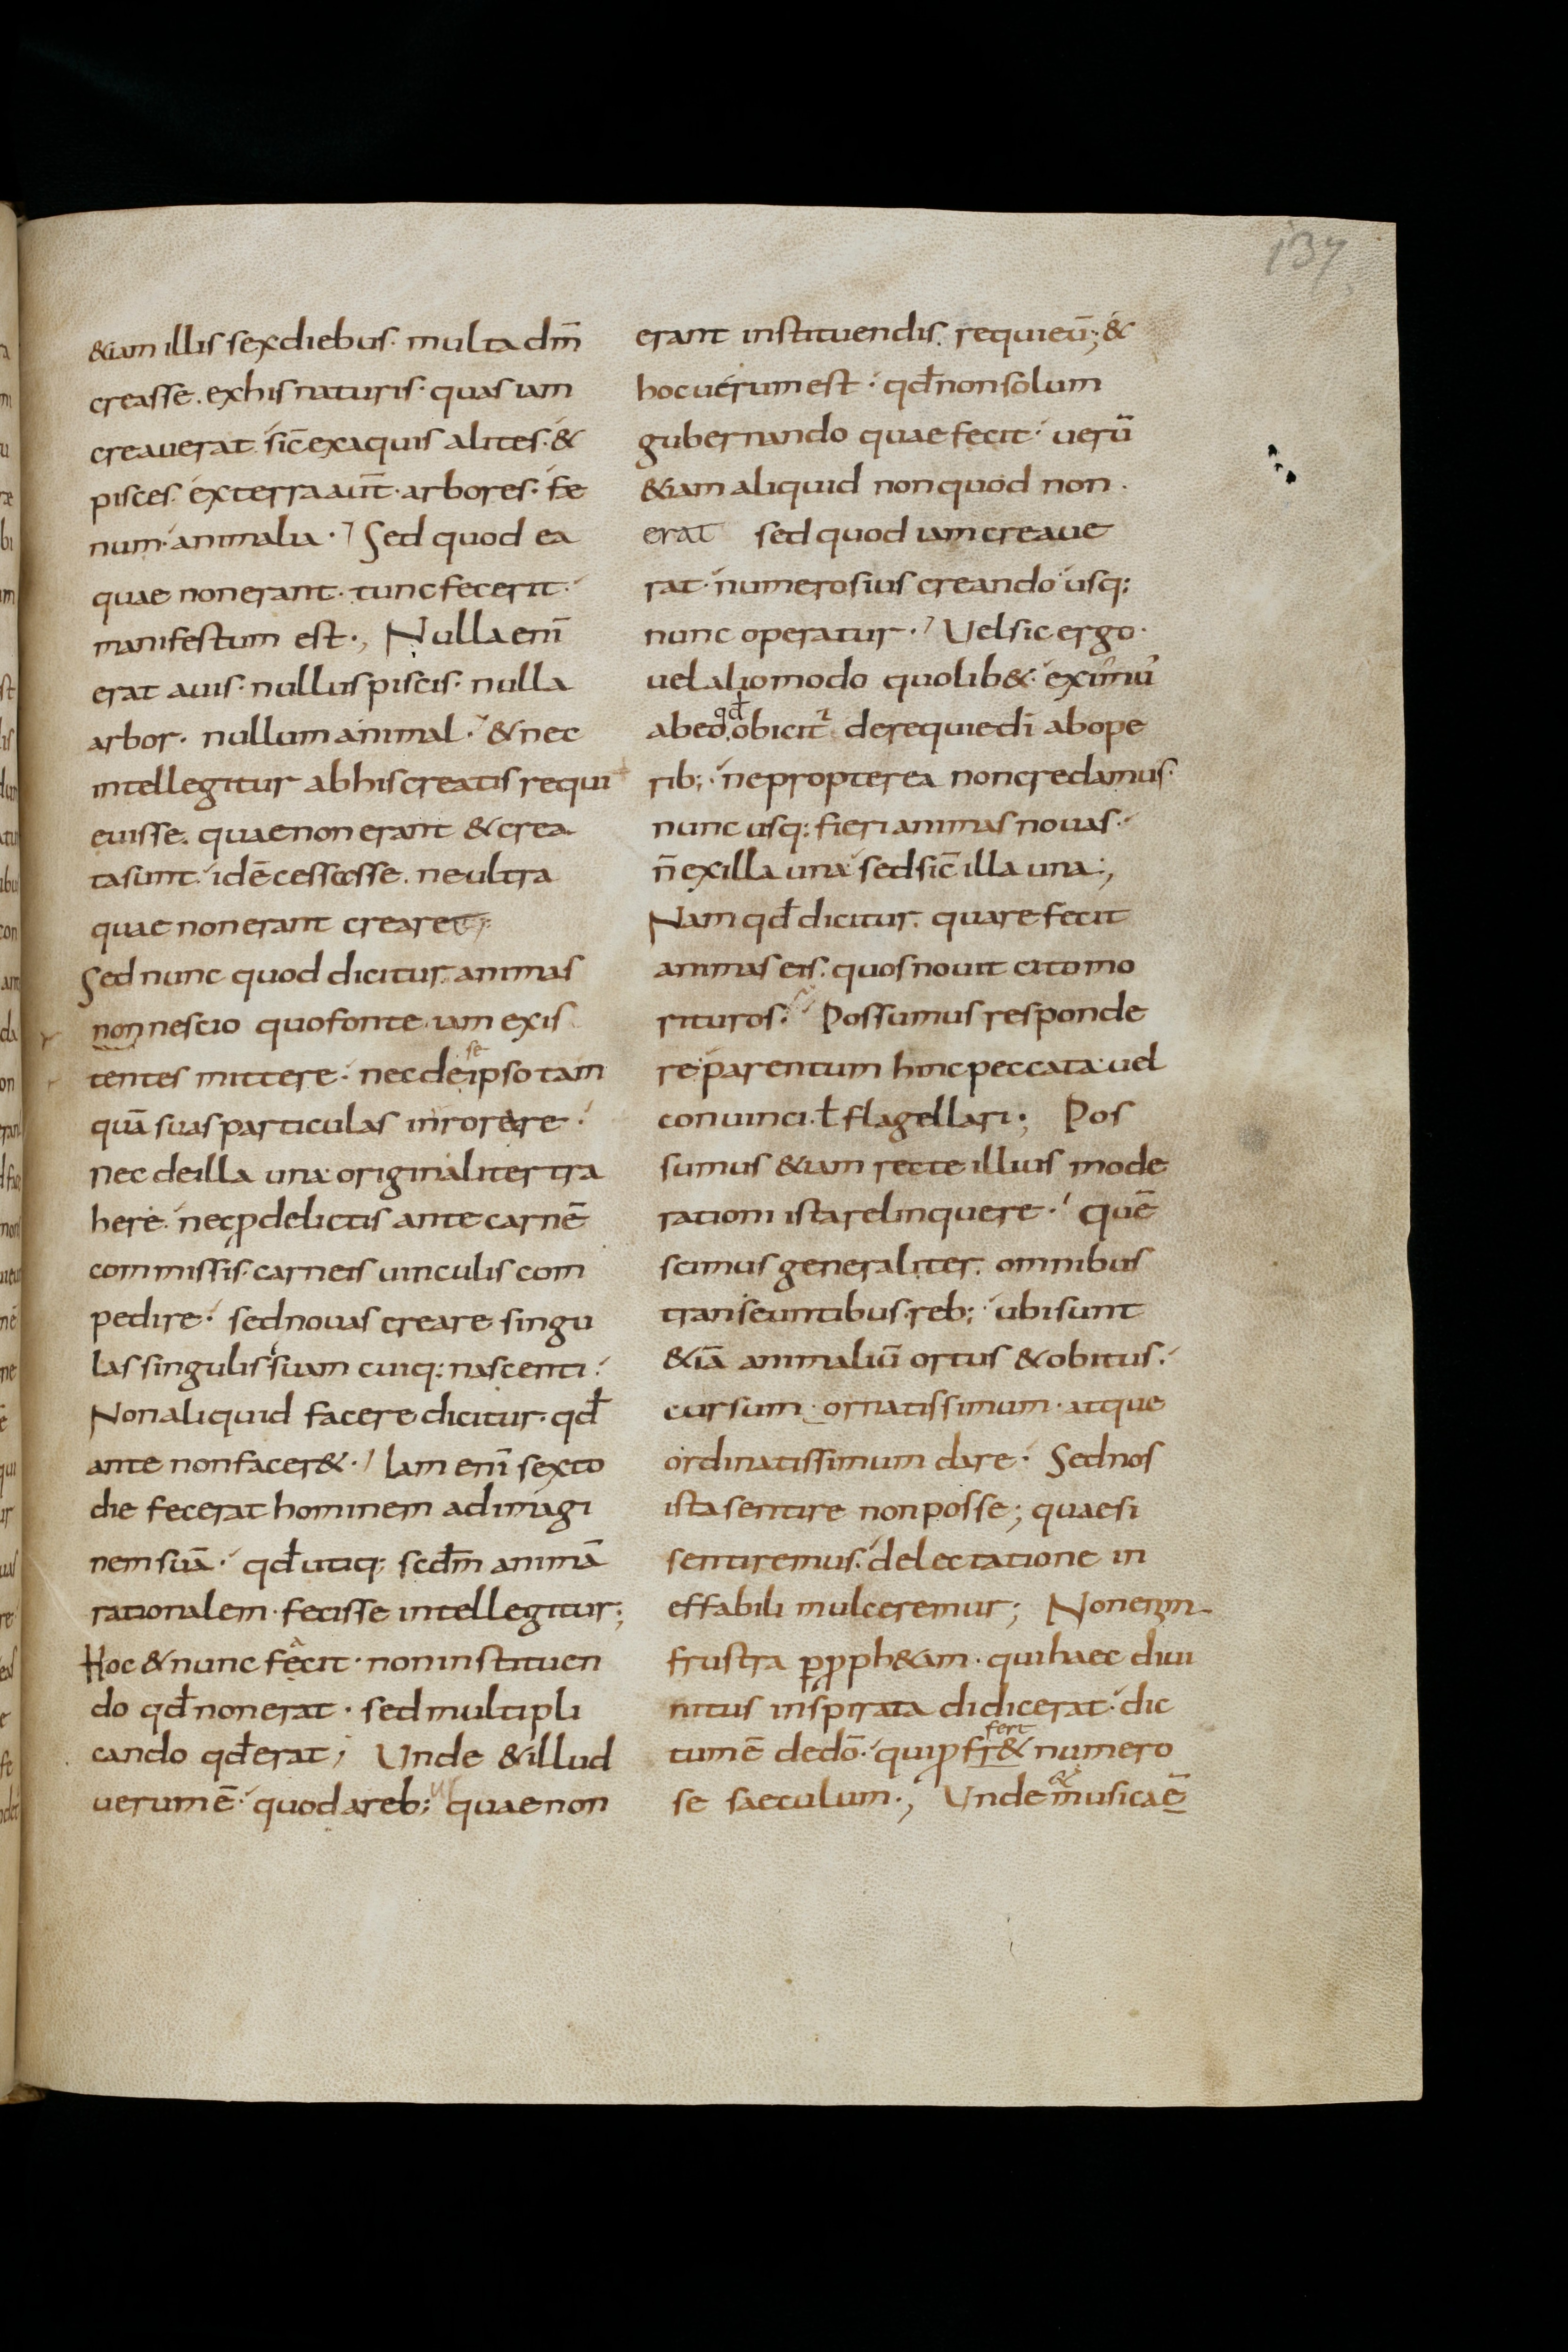 137
&iam illis sex diebus· multa dm̄
creasse. ex his naturis· quas iam
creauerat· sic̄ ex aquis alites· &
pisces· ex terra aut̄· arbores· fe
num· animalia· Sed quod ea
quae non erant· tunc fecerit·
manifestum est·, Nulla eni̅
erat auis· nullus piscis· nulla
arbor· nullum animal· & nec
intellegitur ab his creatis requi
euisse. quae non erant & crea
ta sunt· idē cessasse. ne ultra
quae non erant crearet;
Sed nunc quod dicitur. animas
non nescio quo fonte iam exis
tentes mittere· nec de se ipso tam
quā suas particulas inrorare·
nec de illa una originaliter tra
here· nec ꝓ delictis ante carnē
commissis· carneis uinculis com
pedire· sed nouas creare singu
las singulis suam cuiq: nascenti·
Non aliquid facere dicitur· qđ
ante non facer&· Iam eni̅ sexto
die fecerat hominem ad imagi
nem suā· qđ utiq; scdm̄ animā
rationalem· fecisse intellegitur;
Hoc & nunc fecit· non instituen
do qđ non erat· sed multipli
cando qđ erat; Unde & illud
uerum ē· quod a reb; quae non
erant instituendis. requieū; &
hoc uerum est· qđ non solum
gubernando quae fecit· uerū
&iam aliquid non quod non·
erat sed quod iam creaue
rat· numerosius creando usq:
nunc operatur· Uel sic ergo·
uel alio modo quolib&· eximū
ab eo qđ obicit de requie dī ab ope
rib;· ne propterea non credamus·
nunc usq: fieri animas nouas·
n̄ ex illa una sed sic̄ illa una·,
Nam qđ dicitur. quare fecit
animas eis. quos nouit cito mo
rituros· Possumus responde
re· parentum hinc peccata· uel
conuinci· ł flagellari·; Pos
sumus &iam recte illius mode
rationi ista relinquere· quē
scimus generaliter. omnibus
transeuntibus· reb;· ubi sunt
&iā animaliū ortus & obitus·
cursum· ornatissimum· atque
ordinatissimum dare· Sed nos
ista sentire non posse; quae si
sentiremus· delectatione in
effabili mulceremur; Non enim
frustra p ꝓph&am· qui haec diui
nitus inspirata didicerat· dic
tum ē de dō· qui ꝓfert numero
se saeculum·, Unde & musica ē